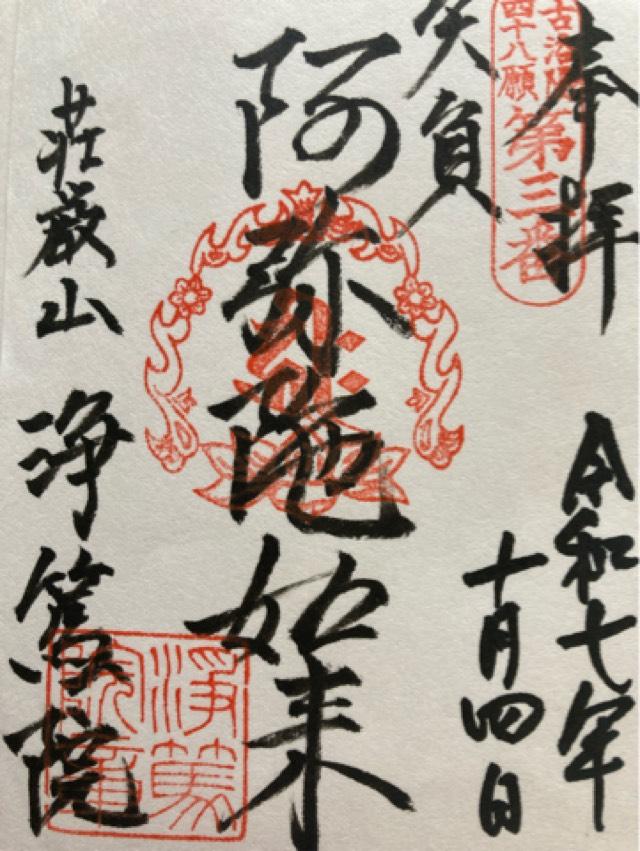 奉拝
古洛陽
四十八願
第三番
令和七年
十月四日
矢負
阿弥陀如来
荘厳山 浄篤院
浄篤
院章